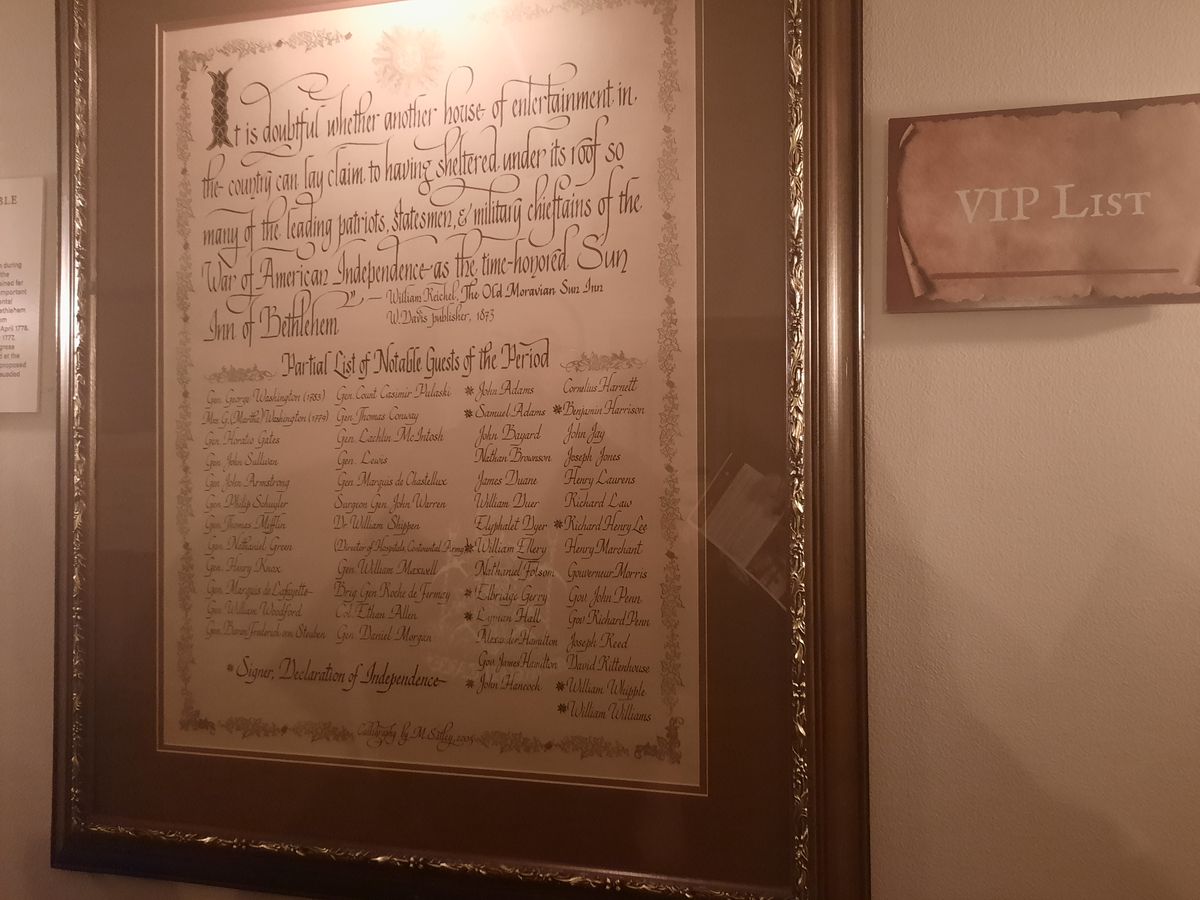 BLE
n during
the
ined far
important
ental
ethlehem
m
April 1778.
1777,
gress
d at the
proposed
suaded
It is doubtful whether another house of entertainment in
the country can lay claim to having sheltered under its roof so
many of the leading patriots, statesmen, & military chieftains of the
War of American Independence as the time-honored Sun
Inn of Bethlehem" — William Reichel, The Old Moravian Sun Inn
W. Davis publisher, 1873
Partial List of Notable Guests of the Period
Gen. George Washington (1783)
Mrs. G. (Martha) Washington (1779)
Gen. Horatio Gates
Gen. John Sullivan
Gen. John Armstrong
Gen. Philip Schuyler
Gen. Thomas Mifflin
Gen. Nathaniel Green
Gen. Henry Knox
Gen. Marquis de Lafayette
Gen. William Woodford
Gen. Baron Frederick von Steuben
Gen. Count Casimir Pulaski
Gen. Thomas Conway
Gen. Lachlin McIntosh
Gen. Lewis
Gen. Marquis de Chastellux
Surgeon Gen. John Warren
Dr. William Shippen
(Director of Hospitals, Continental Army)
Gen. William Maxwell
Brig. Gen Roche de Fermoy
Col. Ethan Allen
Gen. Daniel Morgan
* John Adams
* Samuel Adams
John Bayard
Nathan Brownson
James Duane
William Duer
Elyphalet Dyer
* William Ellery
Nathaniel Folsom
* Elbridge Gerry
* Lyman Hall
Alexander Hamilton
Gov. James Hamilton
* John Hancock
Cornelius Harnett
* Benjamin Harrison
John Jay
Joseph Jones
Henry Laurens
Richard Law
* Richard Henry Lee
Henry Marchant
Gouverneur Morris
Gov. John Penn
Gov. Richard Penn
Joseph Reed
David Rittenhouse
* William Whipple
* William Williams
* Signer, Declaration of Independence
Calligraphy by M. 2005
VIP LIST